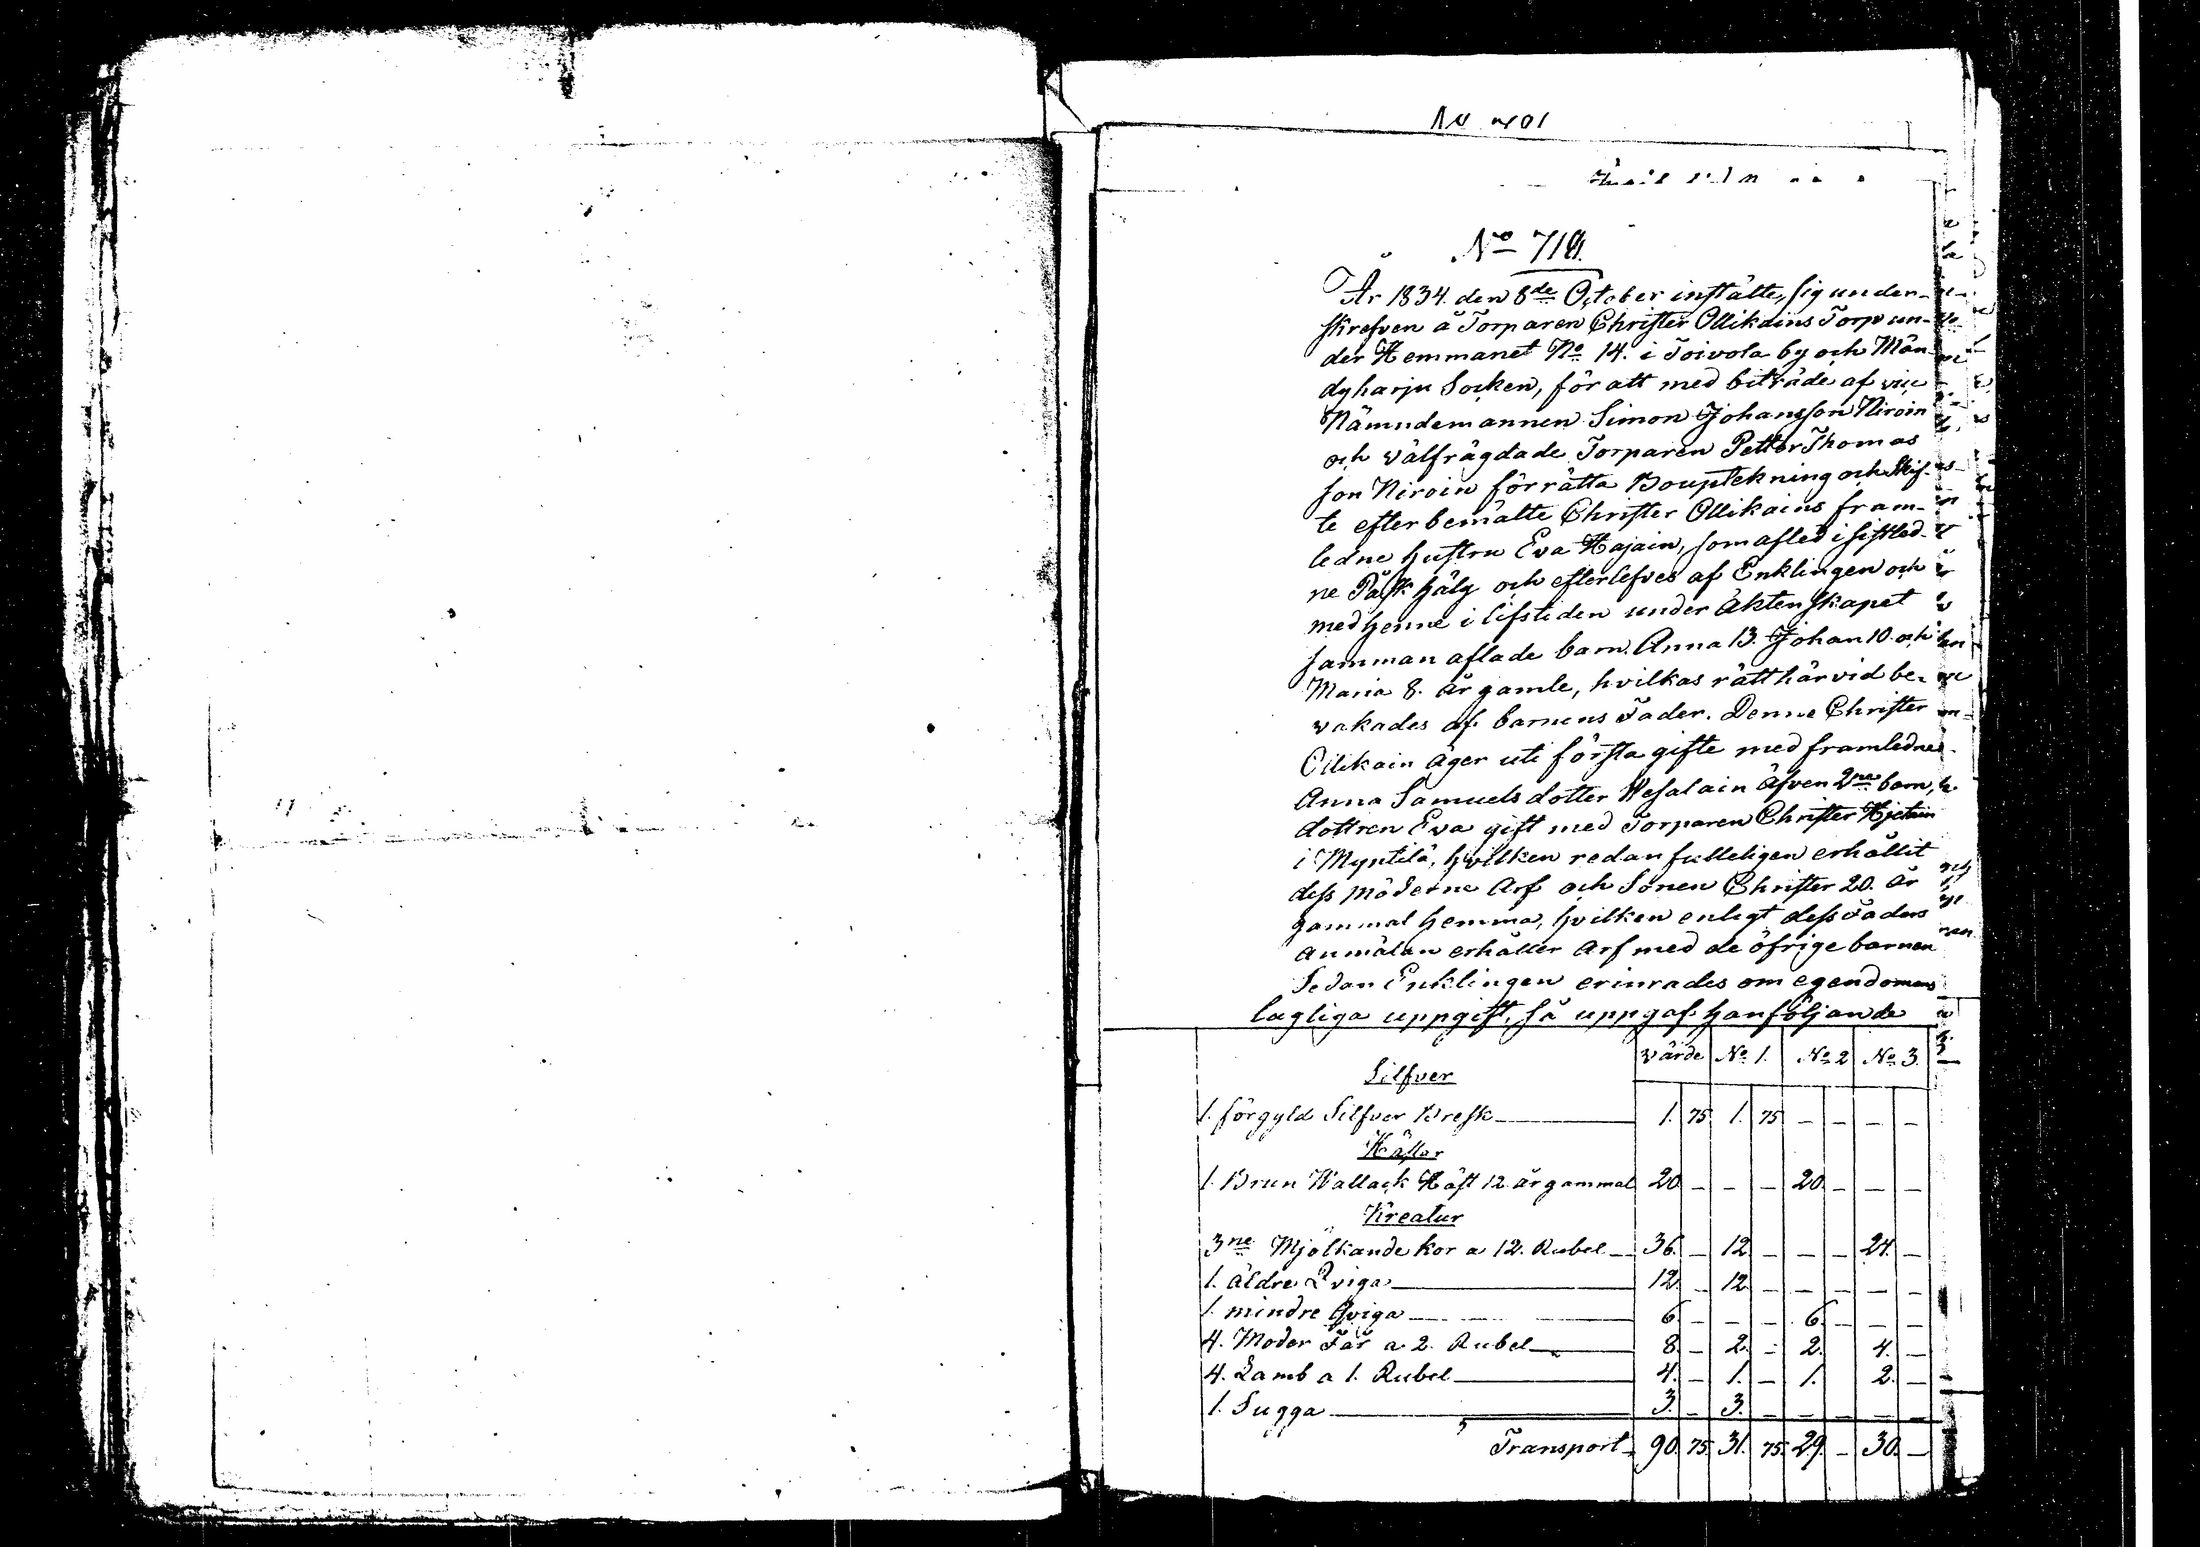 No 719.
År 1834. den 8de October instälte sig under-
skrefven å Torparen Christer Ollikains Torp un-
der Hemmanet No 14. i Toivola by och Män-
dyharju Socken, för att med biträde af vice
Nämndemannen Simon Johansson Niroin
och välfrägdade Torparen Petter Thomas
son Niroin förrätta Bouptekning och Skif-
te efter bemälte Christer Ollikains fram-
ledne hustru Eva Hajain, som afled i sistled-
ne Påsk hälg och efterlefves af Enklingen och
med henne i lifstiden under äktenskapet
samman aflade barn. Anna 13. Johan 10. och
Maria 8. år gamle, hvilkas rätt härvid be-
vakades af barnens Fader. Denne Christer
Ollikain äger uti första gifte med framledne
Anna Samuels dotter Wesalain äfven 2ne barn,
dottren Eva gift med Torparen Christer
i Myntilä, hvilken redan fulleligen erhållit
dess Möderne Arf och Sonen Christer 20. år
gammal hemma, hvilken enligt dess Faders
anmälan erhåller Arf med de öfrige barnen
Sedan Enklingen erinrades om egendomens
lagliga uppgift, så uppgaf han följande
värde No 1. No 2 No 3.
Silfver
1. förgyld Silfver Bresk 1. 75 1. 75 – – – –
Hästar
1. Brun Wallack Häst 12 år gammal 20. – – – 20. – – –
Kreatur
3ne Mjölkande kor a 12. Rubel 36. – 12. – – – 24. –
1. äldre Qviga 12. – 12. – – – – –
1. mindre Qviga 6. – – – 6. – – –
4. Moder Får a 2. Rubel 8. – 2. – 2. 4. –
4. Lamb a 1. Rubel 4. – 1. – 1. 2. –
1. Sugga 3. – 3. – – – – –
Transport 90. 75. 31. 75. 29. – 30. –